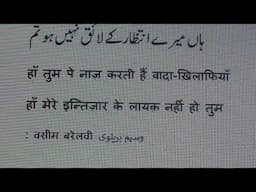 ہاں میرے انتظار کے لائق نہیں ہو تم
हाँ तुम पे नाज़ करती हैं वादा-ख़िलाफ़ियाँ
हाँ मेरे इन्तिज़ार के लायक़ नहीं हो तुम
: वसीम बरेलवी وسیم بریلوی